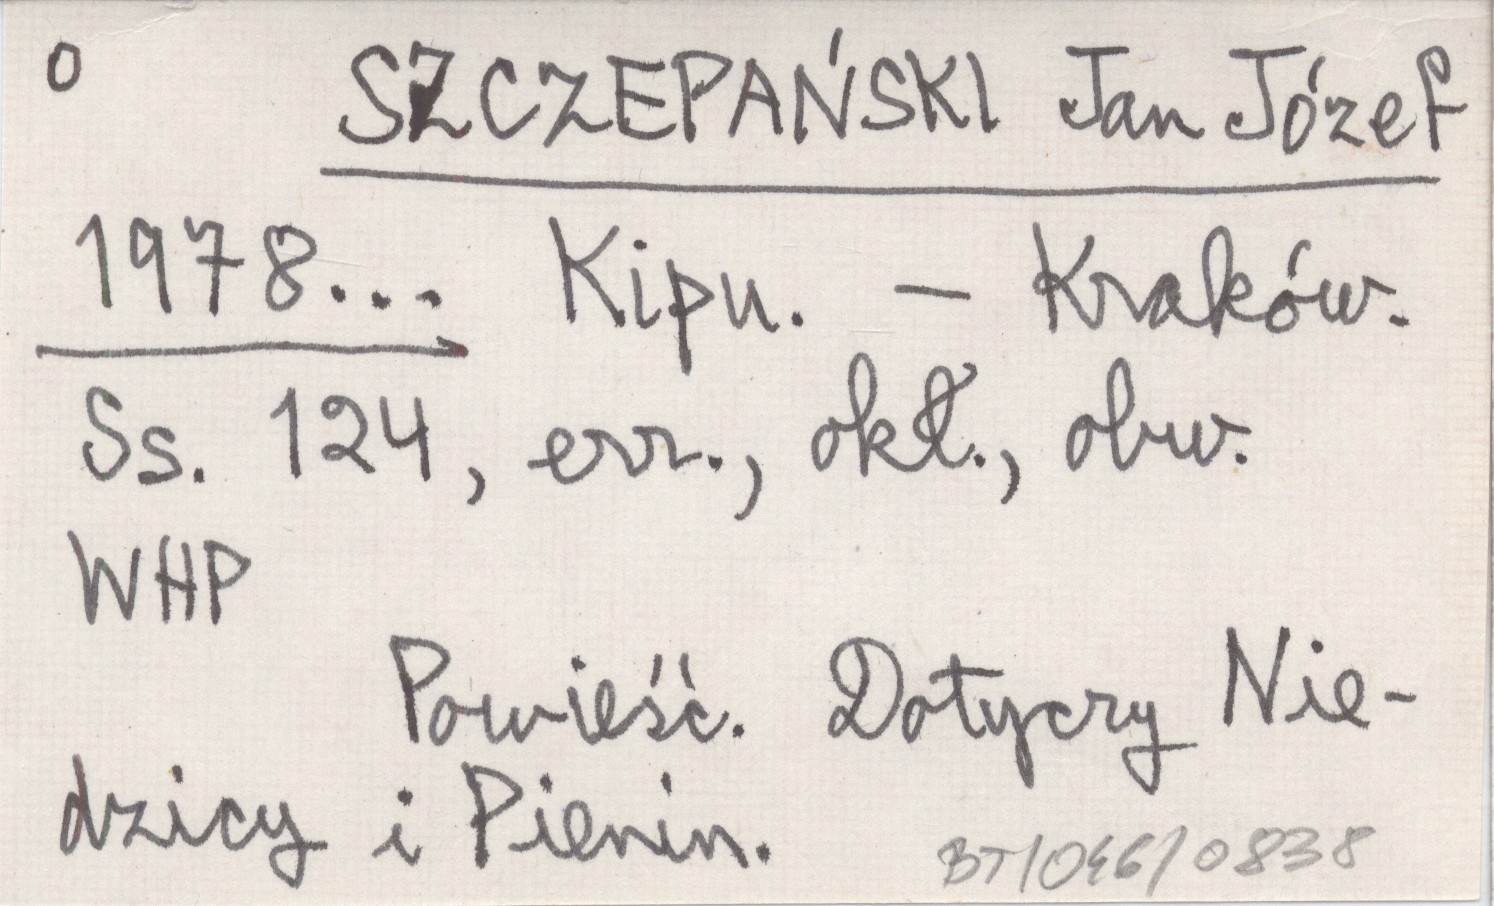 o SZCZEPAŃSKI Jan Józef
1978... Kipu. — Kraków.
Ss. 124, err., okł., obw.
WHP
Powieść. Dotyczy Nie-
dzicy i Pienin.
BT/046/0838